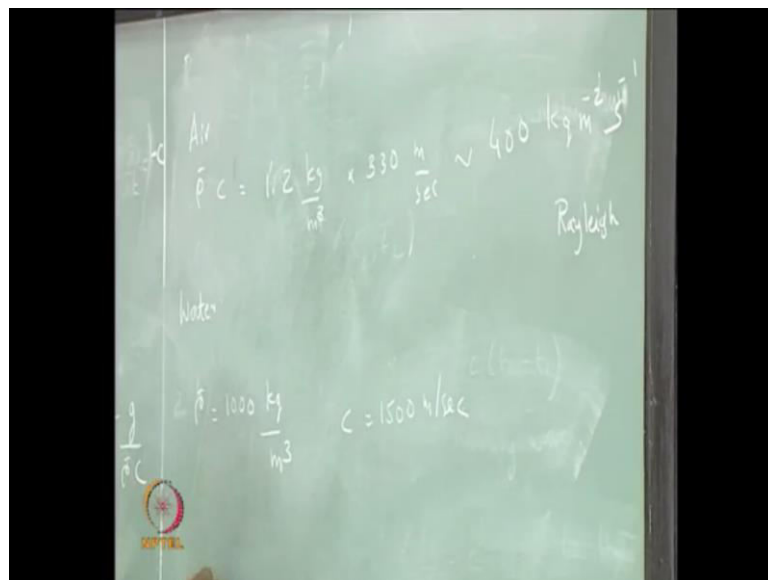 Air
ρ̄ c = 1.2 kg/m³ × 330 m/sec ~ 400 kg m⁻² s⁻¹
Rayleigh
Water
ρ̄ = 1000 kg/m³ c = 1500 m/sec
g/ρ̄c
NPTEL